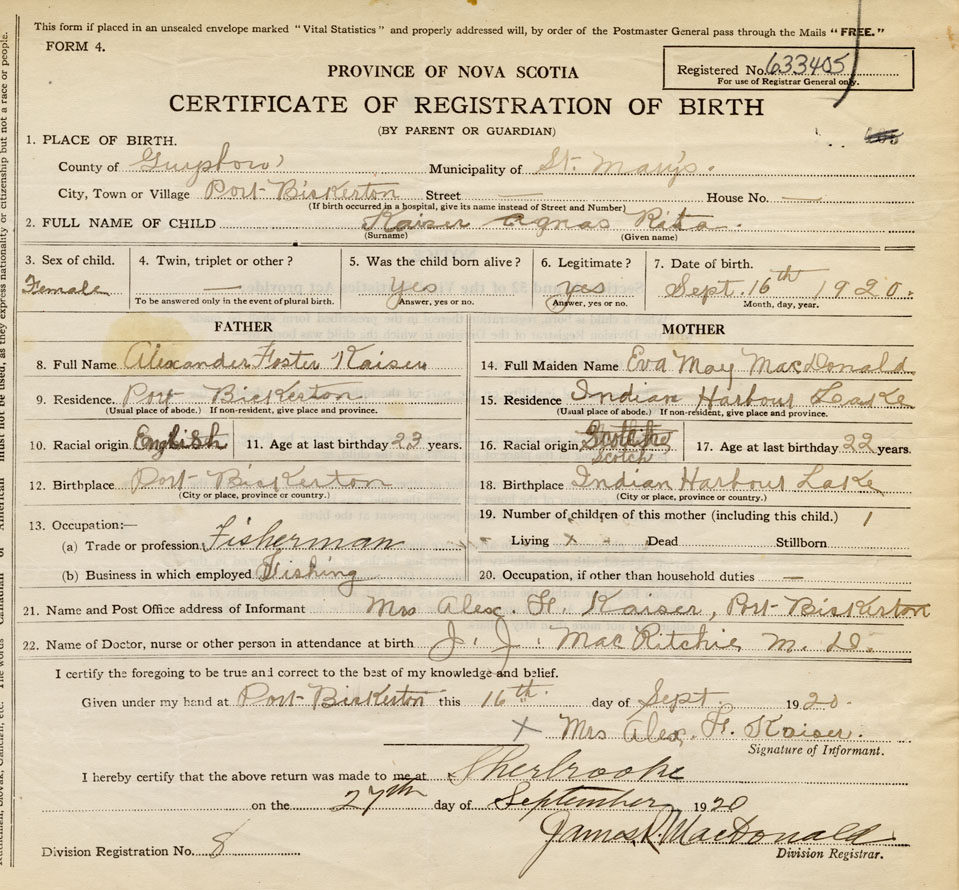 This form if placed in an unsealed envelope marked "Vital Statistics" and properly addressed will, by order of the Postmaster General pass through the Mails "FREE."
FORM 4.
Registered No. 633405
For use of Registrar General only.
PROVINCE OF NOVA SCOTIA
CERTIFICATE OF REGISTRATION OF BIRTH
(BY PARENT OR GUARDIAN)
1. PLACE OF BIRTH.
County of Guysboro' Municipality of St. Mary's.
City, Town or Village Port Bickerton Street — House No. —
(If birth occurred in a hospital, give its name instead of Street and Number)
2. FULL NAME OF CHILD Kaiser Agnas Rita
(Surname) (Given name)
3. Sex of child. 4. Twin, triplet or other? 5. Was the child born alive? 6. Legitimate? 7. Date of birth.
Female — Yes yes Sept. 16th 1920.
To be answered only in the event of plural birth. (Answer, yes or no. (Answer, yes or no. Month, day, year.
FATHER MOTHER
8. Full Name Alexander Foster Kaiser 14. Full Maiden Name Eva May MacDonald
9. Residence. Port Bickerton 15. Residence Indian Harbour Lake
(Usual place of abode.) If non-resident, give place and province. (Usual place of abode.) If non-resident, give place and province.
10. Racial origin English 11. Age at last birthday 23 years. 16. Racial origin Scotch 17. Age at last birthday 22 years.
12. Birthplace Port Bickerton 18. Birthplace Indian Harbour Lake
(City or place, province or country.) (City or place, province or country.)
13. Occupation:— 19. Number of children of this mother (including this child.) 1
(a) Trade or profession Fisherman Living x Dead Stillborn
(b) Business in which employed Fishing 20. Occupation, if other than household duties —
21. Name and Post Office address of Informant Mrs Alex. F. Kaiser, Port Bickerton
22. Name of Doctor, nurse or other person in attendance at birth J. J. MacRitchie M. D.
I certify the foregoing to be true and correct to the best of my knowledge and belief.
Given under my hand at Port Bickerton this 16th. day of Sept. 1920.
X Mrs Alex. F. Kaiser.
Signature of Informant.
I hereby certify that the above return was made to me at Sherbrooke
on the 27th day of September 1920
James R. MacDonald
Division Registration No. 8 Division Registrar.